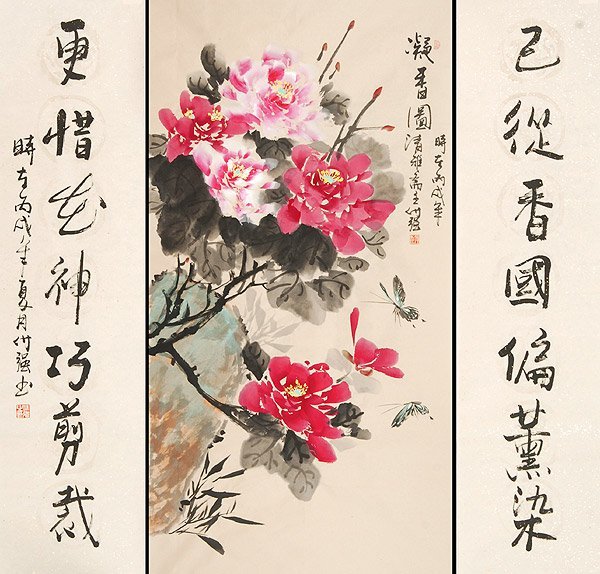 已從香國偏薰染
凝香圖清雅齋主仲强
時在丙戌年
更惜花神巧剪裁
時在丙戌年夏月仲强书